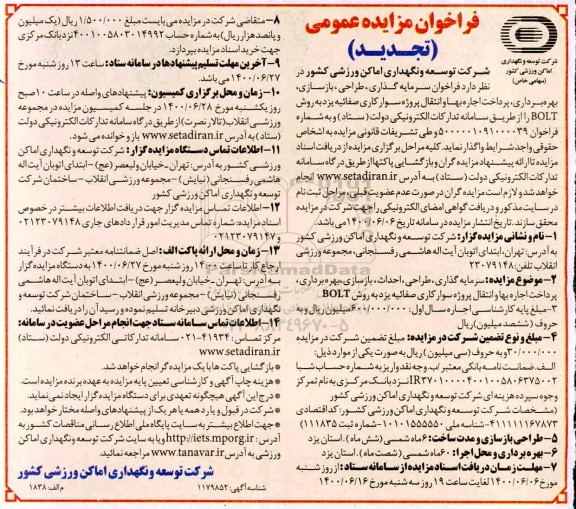 فراخوان مزایده عمومی
(تجدید)
شرکت توسعه و نگهداری
اماکن ورزشی کشور
(سهامی خاص)
شرکت توسعه و نگهداری اماکن ورزشی کشور در
نظر دارد فراخوان سرمایه گذاری، طراحی، بازسازی،
بهره‌برداری، پرداخت اجاره بها و انتقال پروژه سوارکاری صفائیه یزد به روش
BOLT را از طریق سامانه تدارکات الکترونیکی دولت (ستاد) و به شماره
فراخوان ۵۰۰۰۰۱۰۹۱۰۰۰۰۳۹ و طی تشریفات قانونی مزایده به اشخاص
حقوقی واجد شرایط واگذار نماید. کلیه مراحل برگزاری مزایده از دریافت اسناد
مزایده تا ارائه پیشنهاد مزایده گران و بازگشایی پاکتها از طریق درگاه سامانه
تدارکات الکترونیکی دولت (ستاد) به آدرس www.setadiran.ir انجام
خواهد شد و لازم است مزایده گران در صورت عدم عضویت قبلی، مراحل ثبت نام
در سایت مذکور و دریافت گواهی امضای الکترونیکی را جهت شرکت در مزایده
محقق سازند. تاریخ انتشار مزایده در سامانه تاریخ ۱۴۰۰/۰۶/۰۶ می باشد.
۱- نام و نشانی مزایده گزار: شرکت توسعه و نگهداری اماکن ورزشی کشور
به آدرس: تهران، ابتدای اتوبان آیت اله هاشمی رفسنجانی، مجموعه ورزشی
انقلاب تلفن: ۲۳۰۷۹۱۴۸
۲- موضوع مزایده: سرمایه گذاری، طراحی، احداث، بازسازی، بهره برداری،
پرداخت اجاره بها و انتقال پروژه سوارکاری صفائیه یزد به روش BOLT
۳- مبلغ پایه کارشناسی اجاره سال اول: ۶۰۰/۰۰۰/۰۰۰ میلیون ریال و به
حروف (ششصد میلیون) ریال
۴- مبلغ و نوع تضمین شرکت در مزایده: مبلغ تضمین شرکت در مزایده
۳۰/۰۰۰/۰۰۰ و به حروف (سی میلیون) ریال به صورت یکی از موارد ذیل:
الف. ضمانت نامه بانکی معتبر / ب. وجه نقد واریز به شماره حساب شبا
نزد بانک مرکزی به نام تمرکز
وجوه سپرده هزینه ای شرکت توسعه و نگهداری اماکن ورزشی کشور
(مشخصات شرکت توسعه و نگهداری اماکن ورزشی کشور: کد اقتصادی
۴۱۱۱۱۱۱۶۷۸۷۳- شناسه ملی ۱۰۱۰۱۵۵۵۵۵۰- شماره ثبت ۱۱۱۸۳۵)
۵- طراحی بازسازی و مدت ساخت: ۶ ماه شمسی (شش ماه). استان یزد
۶- بهره برداری و محل اجرا: ۶۰ ماه شمسی (شصت ماه). استان یزد
۷- مهلت زمان دریافت اسناد مزایده از سامانه ستاد: از روز شنبه
مورخ ۱۴۰۰/۰۶/۰۶ لغایت ساعت ۱۹ روز سه شنبه مورخ ۱۴۰۰/۰۶/۱۶
۸- متقاضی شرکت در مزایده می بایست مبلغ ۱/۵۰۰/۰۰۰ ریال (یک میلیون
و پانصد هزار ریال) به شماره حساب ۴۰۰۱۰۰۵۸۰۳۰۱۴۹۹۲ نزد بانک مرکزی
جهت خرید اسناد مزایده بپردازد.
۹- آخرین مهلت تسلیم پیشنهادها در سامانه ستاد: ساعت ۱۳ روز شنبه مورخ
۱۴۰۰/۰۶/۲۷ می باشد.
۱۰- زمان و محل برگزاری کمیسیون: پیشنهادهای واصله در ساعت ۱۰ صبح
روز یکشنبه مورخ ۱۴۰۰/۰۶/۲۸ در جلسه کمیسیون مزایده در مجموعه
ورزشی انقلاب (تالار نصرت) از طریق درگاه سامانه تدارکات الکترونیکی دولت
(ستاد) به آدرس www.setadiran.ir باز و خوانده می شود.
۱۱- اطلاعات تماس دستگاه مزایده گزار: شرکت توسعه و نگهداری اماکن
ورزشی کشور به آدرس: تهران- خیابان ولیعصر (عج)- ابتدای اتوبان آیت اله
هاشمی رفسنجانی (نیایش)- مجموعه ورزشی انقلاب- ساختمان شرکت
توسعه و نگهداری اماکن ورزشی کشور
۱۲- اطلاعات تماس مزایده گزار جهت دریافت اطلاعات بیشتر در خصوص
اسناد مزایده: شماره تماس مدیریت امور قرار دادهای جاری ۰۲۱۲۳۰۷۹۱۴۸
و ۰۲۱۲۳۰۷۹۱۴۷
۱۳- زمان و محل ارائه پاکت الف: اصل ضمانتنامه معتبر شرکت در فرآیند
ارجاع کار تا ساعت ۱۴:۰۰ روز شنبه مورخ ۱۴۰۰/۰۶/۲۷ به دستگاه مزایده گزار
به آدرس: تهران- خیابان ولیعصر (عج)- ابتدای اتوبان آیت اله هاشمی
رفسنجانی (نیایش)- مجموعه ورزشی انقلاب- ساختمان شرکت توسعه و
نگهداری اماکن ورزشی دبیرخانه تسلیم نموده و رسید آن را دریافت نمائید.
۱۴- اطلاعات تماس سامانه ستاد جهت انجام مراحل عضویت در سامانه:
مرکز تماس: ۴۱۹۳۴-۰۲۱ سامانه تدارکات الکترونیکی دولت (ستاد)
www.setadiran.ir
* بازگشایی پاکت ها با یک مزایده گر انجام خواهد شد.
* هزینه چاپ آگهی و کارشناسی تعیین پایه مزایده به عهده برنده مزایده است.
* درج این آگهی هیچگونه تعهدی برای دستگاه مزایده گزار ایجاد نمی نماید.
* شرکت در قبول و یا رد همه یا هر یک از پیشنهادهای واصله مختار خواهد بود.
* جهت اطلاع بیشتر به سایت پایگاه ملی اطلاع رسانی مناقصات کشور به
آدرس: http://iets.mporg.ir و یا به سایت شرکت توسعه و نگهداری اماکن
ورزشی به آدرس www.tanavar.ir مراجعه نمائید.
شرکت توسعه و نگهداری اماکن ورزشی کشور
شناسه آگهی: ۱۱۷۹۸۵۲
م الف: ۱۸۳۸